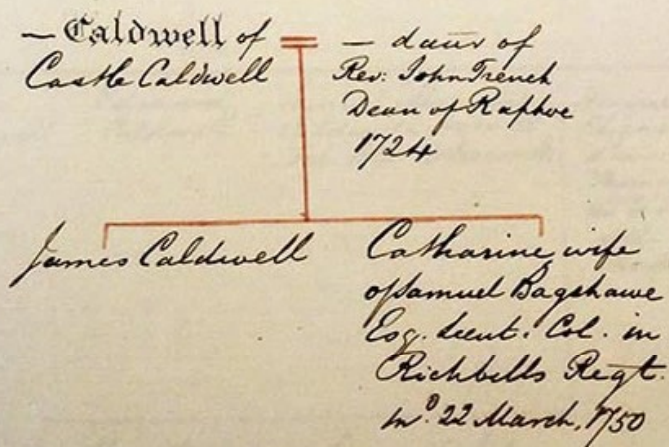 — Caldwell of
Castle Caldwell
— daur of
Rev: John Trench
Dean of Raphoe
1724
James Caldwell
Catharine, wife
of Samuel Bagshawe
Esq. Lieut: Col. in
Richbells Regt.
mᵈ 22 March, 1750